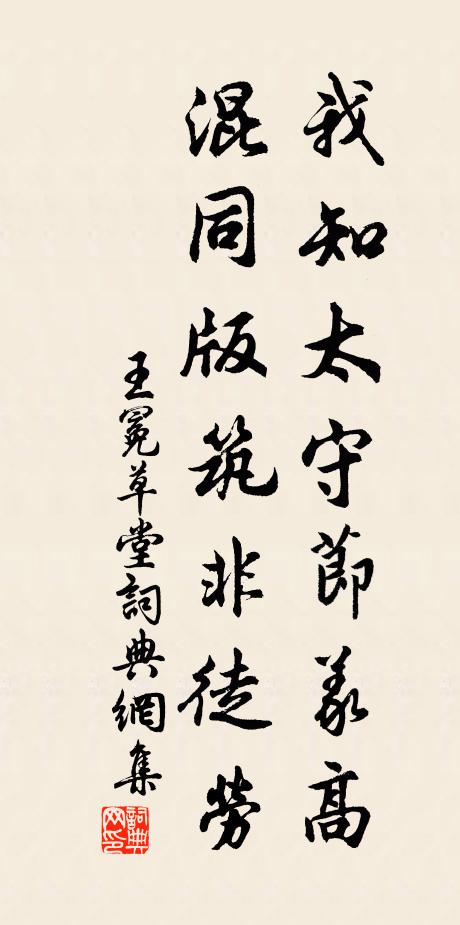 我知太守節義高
混同版筑非徒勞
王冕草堂詞典網集
詞典網印